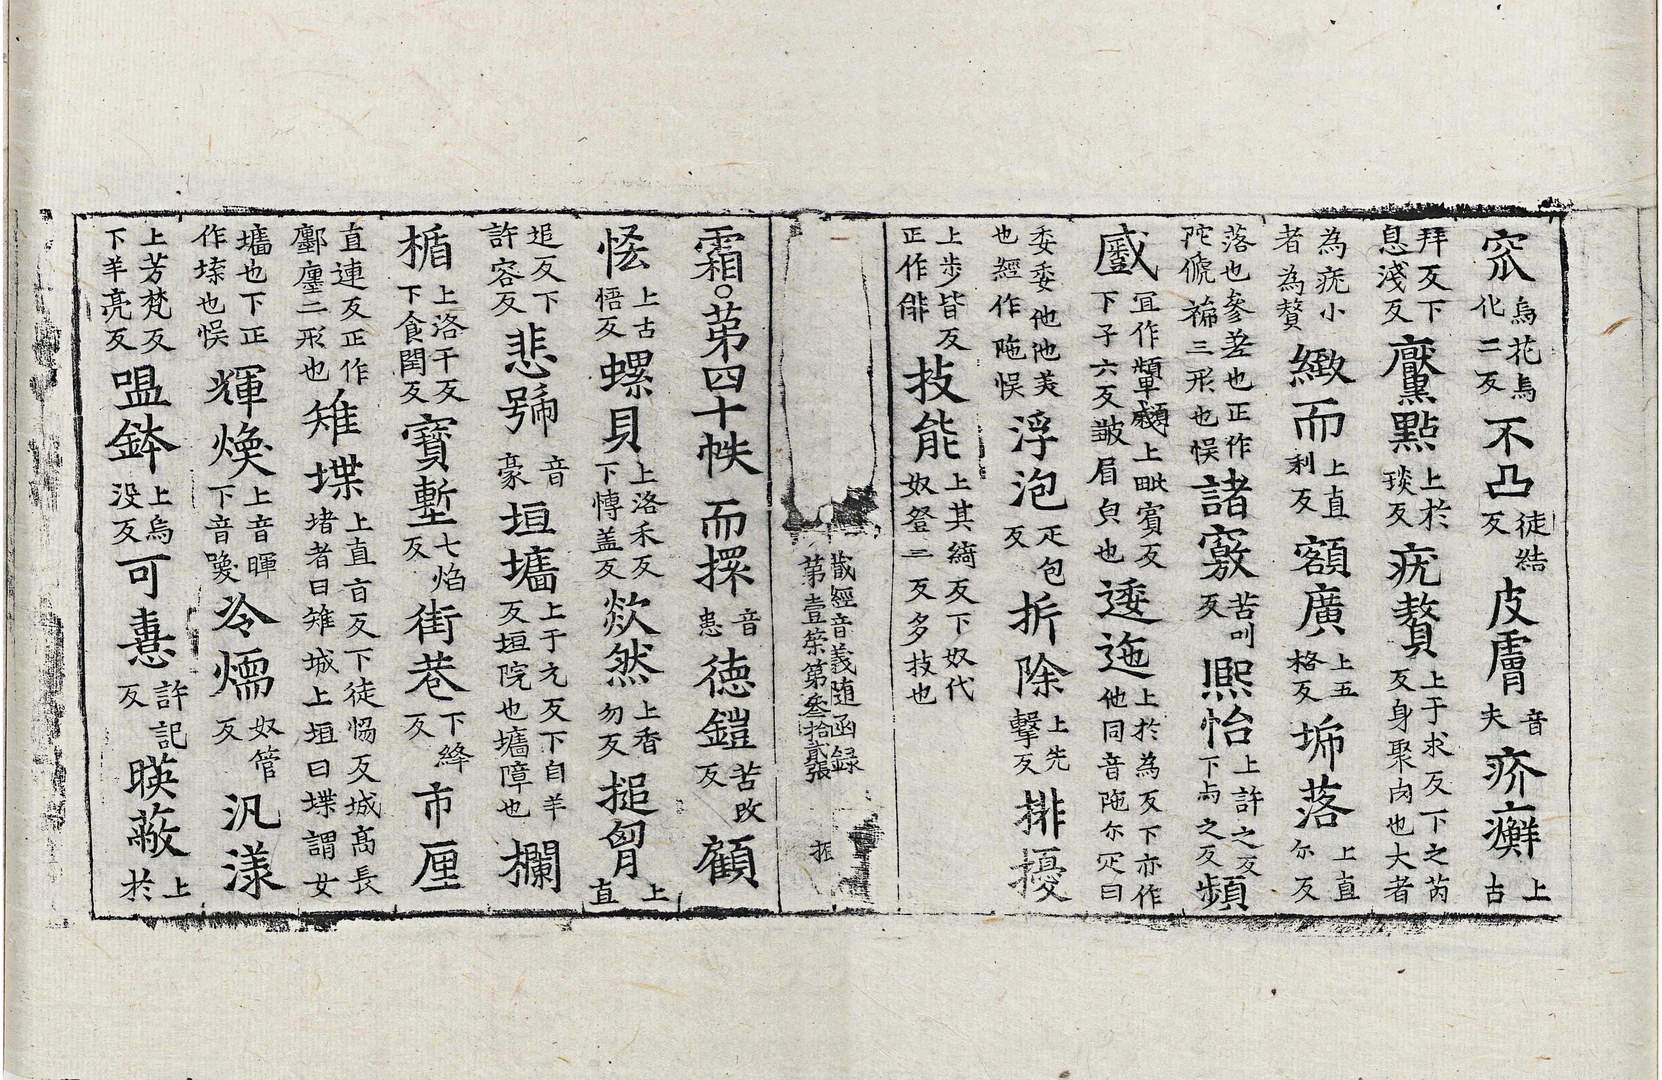 窊烏花烏化二反不凸徒結反皮膚音夫疥癬上古
拜反下息淺反黶點上於琰反疣贅上于求反下之芮反身聚肉也大者
為疣小者為贅緻而上直利反額廣上五格反㡳落上直尓反
落也參差也正作陊褫㡳三形也悮諸竅苦叫反熙怡上許之反下与之反頻
蹙宜作顰顣上毗賓反下子六反皺眉皃也逶迤上於為反下亦作他同音陁尓疋曰
委委他他美也經作陁悮浮泡疋包反折除上先擊反排擾
上步皆反正作俳技能上其綺反下奴代奴登二反多技也
藏經音義随函録第壹筞第叁拾貳張 振
霜○第四十帙而擐音患德鎧苦改反顧
恡上古悟反螺貝上洛禾反下博盖反欻然上香勿反搥胷上直
追反下許容反悲號音豪垣墻上于元反下自羊反垣院也墻障也欄
楯上洛干反下食閏反寶塹七焰反街巷下絳反市㕓
直連反正作鄽廛二形也雉堞上直旨反下徒愶反城高長堵者曰雉城上垣曰堞謂女
墻也下正作堞也悮輝煥上音暉下音喚冷煗奴管反汎漾
上芳梵反下羊亮反嗢鉢上烏没反可憙許記反暎蔽上於